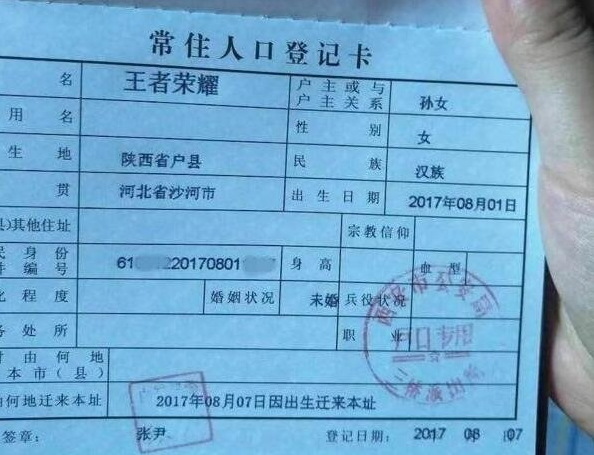 常住人口登记卡
名 王者荣耀 户主或与户主关系 孙女
用名 性别 女
生地 陕西省户县 民族 汉族
贯 河北省沙河市 出生日期 2017年08月01日
)其他住址 宗教信仰
民身份件编号 61 220170801 身高 血型
化程度 婚姻状况 未婚 兵役状况
务处所 职业
由何地
本市(县)
由何地迁来本址 2017年08月07日因出生迁来本址
签章: 张尹 登记日期: 2017 08 07
西安市公安局
户口专用
三桥派出所